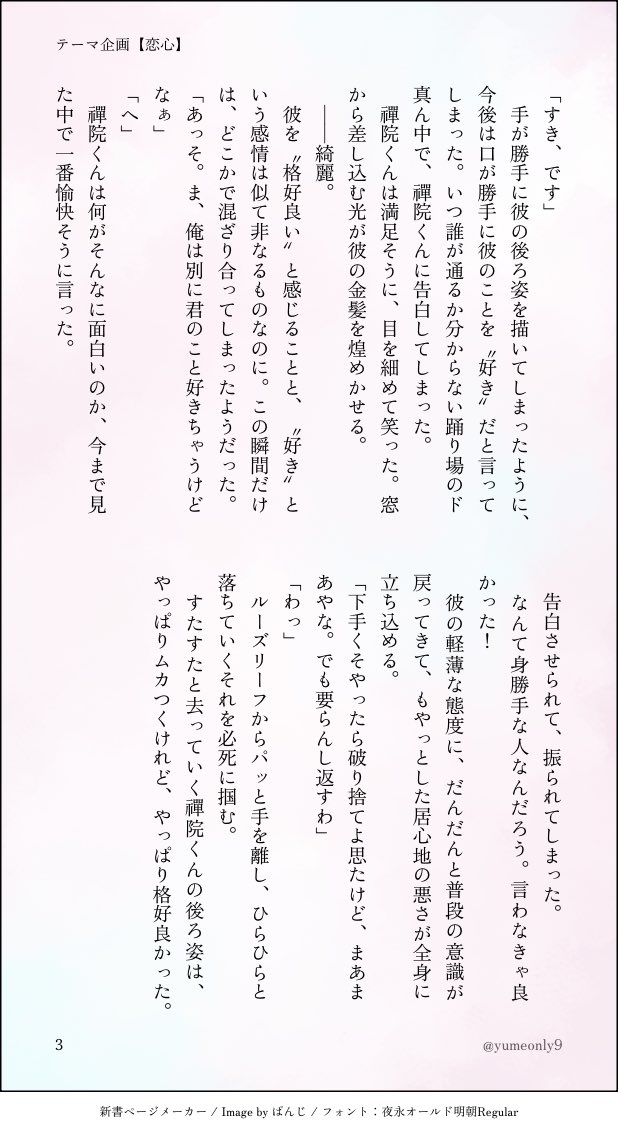 テーマ企画【恋心】
「すき、です」
　手が勝手に彼の後ろ姿を描いてしまったように、
今後は口が勝手に彼のことを〝好き〟だと言って
しまった。いつ誰が通るか分からない踊り場のド
真ん中で、禪院くんに告白してしまった。
　禪院くんは満足そうに、目を細めて笑った。窓
から差し込む光が彼の金髪を煌めかせる。
　――綺麗。
　彼を〝格好良い〟と感じることと、〝好き〟と
いう感情は似て非なるものなのに。この瞬間だけ
は、どこかで混ざり合ってしまったようだった。
「あっそ。ま、俺は別に君のこと好きちゃうけど
なぁ」
「へ」
　禪院くんは何がそんなに面白いのか、今まで見
た中で一番愉快そうに言った。
　告白させられて、振られてしまった。
　なんて身勝手な人なんだろう。言わなきゃ良
かった！
　彼の軽薄な態度に、だんだんと普段の意識が
戻ってきて、もやっとした居心地の悪さが全身に
立ち込める。
「下手くそやったら破り捨てよ思たけど、まあま
あやな。でも要らんし返すわ」
「わっ」
　ルーズリーフからパッと手を離し、ひらひらと
落ちていくそれを必死に掴む。
　すたすたと去っていく禪院くんの後ろ姿は、
やっぱりムカつくけれど、やっぱり格好良かった。
3
@yumeonly9
新書ページメーカー / Image by ぱんじ / フォント：夜永オールド明朝Regular